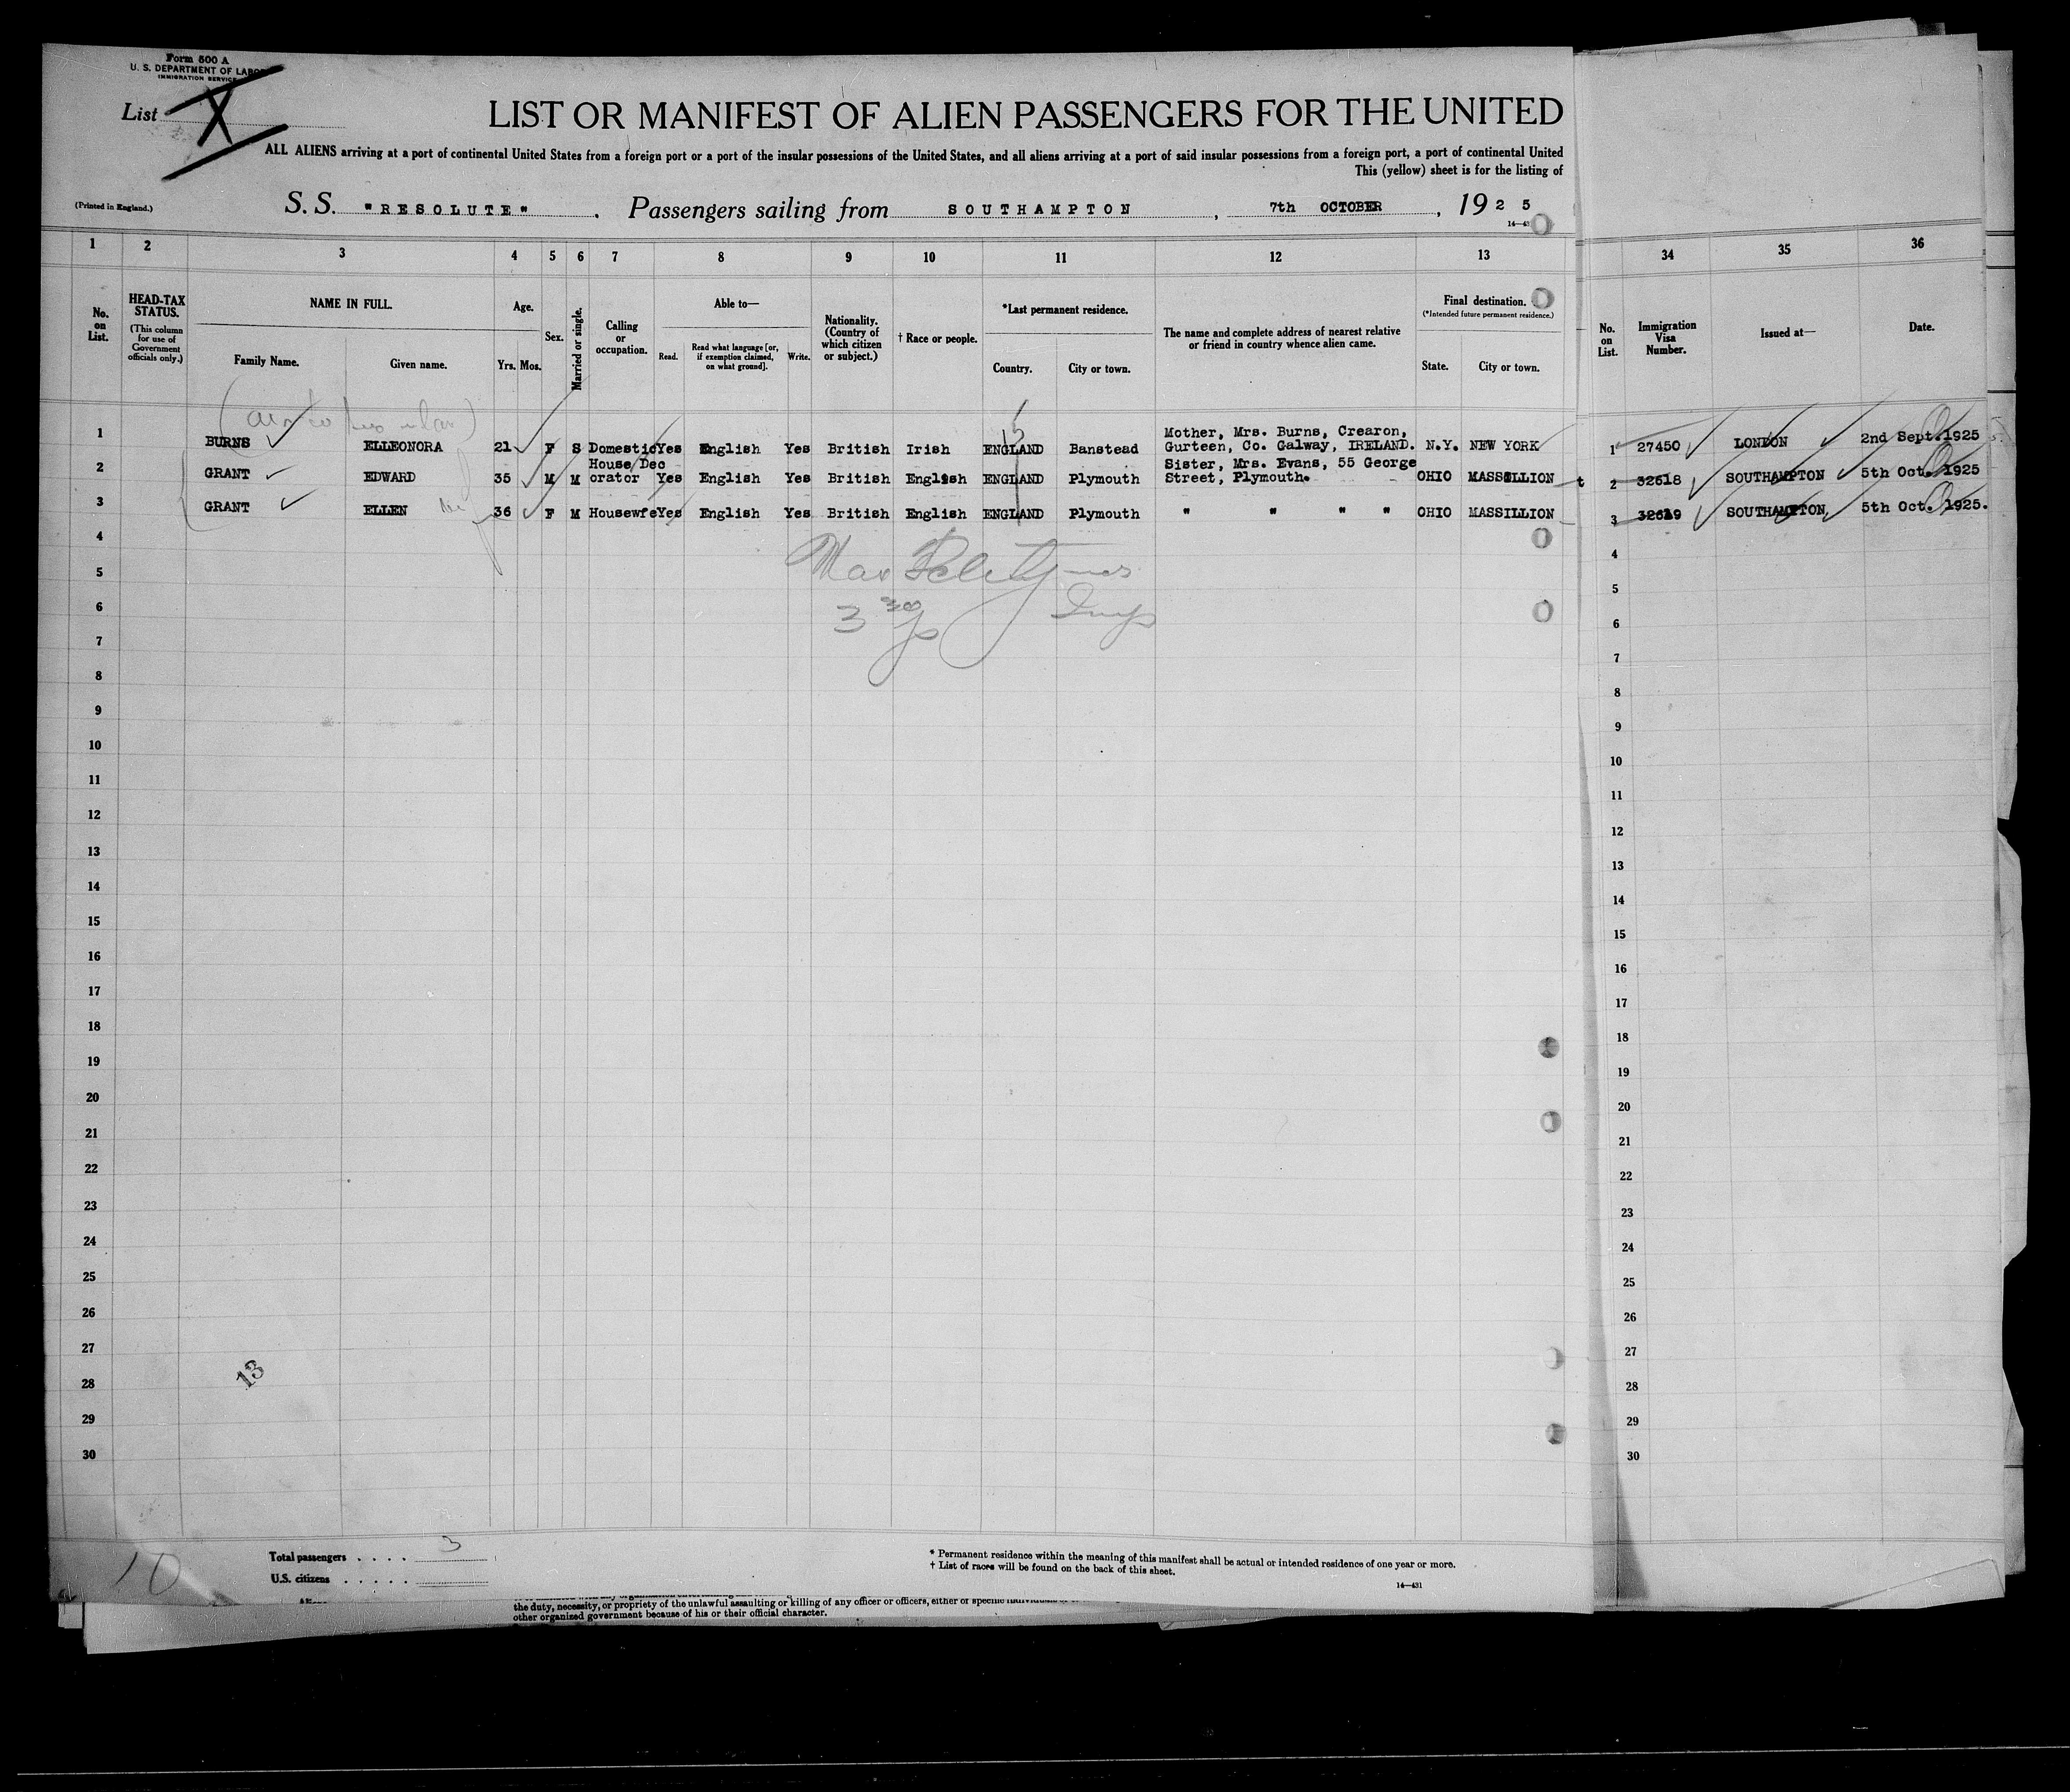 Form 500 A
U. S. DEPARTMENT OF LABOR
IMMIGRATION SERVICE
List X
LIST OR MANIFEST OF ALIEN PASSENGERS FOR THE UNITED
ALL ALIENS arriving at a port of continental United States from a foreign port or a port of the insular possessions of the United States, and all aliens arriving at a port of said insular possessions from a foreign port, a port of continental United
This (yellow) sheet is for the listing of
(Printed in England.)
S. S. "RESOLUTE" . Passengers sailing from SOUTHAMPTON , 7th OCTOBER , 19 2 5
1 2 3 4 5 6 7 8 9 10 11 12 13 34 35 36
No. on List.
HEAD-TAX STATUS.
(This column for use of Government officials only.)
NAME IN FULL.
Family Name. Given name.
Age.
Yrs. Mos.
Sex.
Married or single.
Calling or occupation.
Able to—
Read. Read what language [or, if exemption claimed, on what ground]. Write.
Nationality. (Country of which citizen or subject.)
† Race or people.
*Last permanent residence.
Country. City or town.
The name and complete address of nearest relative or friend in country whence alien came.
Final destination.
(*Intended future permanent residence.)
State. City or town.
No. on List.
Immigration Visa Number.
Issued at—
Date.
1 BURNS ELLEONORA 21 F S Domestic Yes English Yes British Irish ENGLAND Banstead Mother, Mrs. Burns, Crearon, Gurteen, Co. Galway, IRELAND. N.Y. NEW YORK 1 27450 LONDON 2nd Sept. 1925
2 GRANT EDWARD 35 M M House Dec orator Yes English Yes British English ENGLAND Plymouth Sister, Mrs. Evans, 55 George Street, Plymouth. OHIO MASSILLION 2 32618 SOUTHAMPTON 5th Oct. 1925
3 GRANT ELLEN 36 F M Housewfe Yes English Yes British English ENGLAND Plymouth " " " " OHIO MASSILLION 3 32619 SOUTHAMPTON, 5th Oct. 1925.
4 4
5 5
6 6
7 7
8 8
9 9
10 10
11 11
12 12
13 13
14 14
15 15
16 16
17 17
18 18
19 19
20 20
21 21
22 22
23 23
24 24
25 25
26 26
27 27
28 28
29 29
30 30
13
10
Total passengers . . . . 3
U.S. citizens . . . . .
* Permanent residence within the meaning of this manifest shall be actual or intended residence of one year or more.
† List of races will be found on the back of this sheet.
14—431
the duty, necessity, or propriety of the unlawful assaulting or killing of any officer or officers, either of specific
other organized government because of his or their official character.